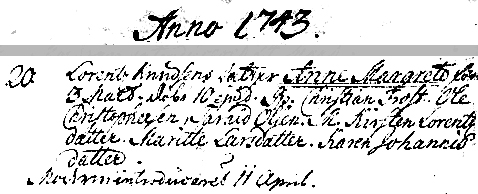 Anno 1743.
20 Lorents Knudsens datter Anne Margrete
Christian Trost. Ole
Christophersen, Olsen. Kirsten Lorents
datter. Maritte Larsdatter. Karen Johannis
datter.
Moderen introduceret 11 April.